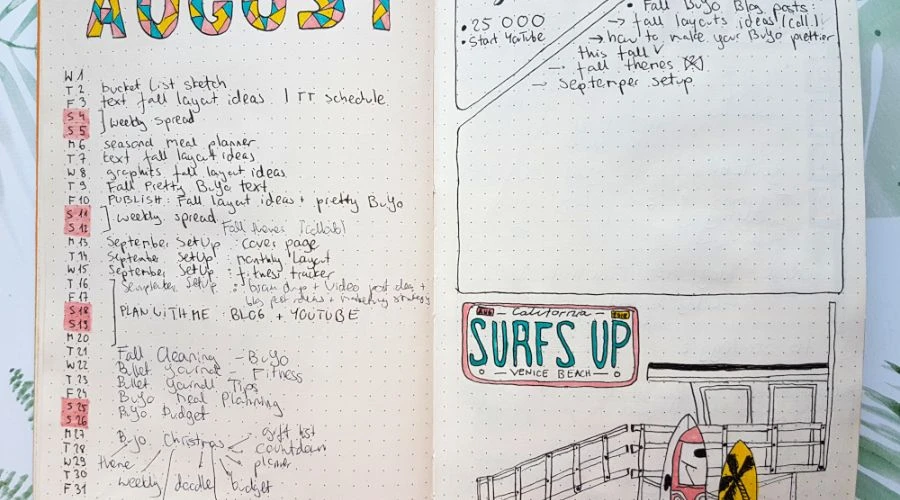 AUGUST
W 1
T 2 bucket list sketch
F 3 text fall layout ideas | TT schedule
S 4
S 5 weekly spread
M 6 seasonal meal planner
T 7 text fall layout ideas
W 8 graphits fall layout ideas
T 9 Fall Pretty BuJo text
F 10 PUBLISH: Fall layout ideas + pretty BuJo
S 11
S 12 weekly spread
Fall themes (collab!)
M 13 September SetUp : cover page
T 14 September SetUp : monthly layout
W 15 September SetUp : fitness tracker
T 16 September SetUp : brain dump + video post ideas +
F 17 blog post ideas + marketing strategy
S 18 PLAN WITH ME : BLOG + YOUTUBE
S 19
M 20
T 21 Fall Cleaning - BuJo
W 22 Bullet Journal - Fitness
T 23 Bullet Journal Tips
F 24 BuJo Meal Planning
S 25 BuJo budget
S 26
M 27 BuJo Christmas gift list
T 28 countdown
W 29 theme planner
T 30 weekly doodle budget
F 31
25 000
Start YouTube
Fall BuJo Blog posts:
→ fall layouts ideas (coll.)
→ how to make your BuJo prettier
this fall √
→ fall themes
→ September setup
AUG California 2018
SURFS UP
VENICE BEACH